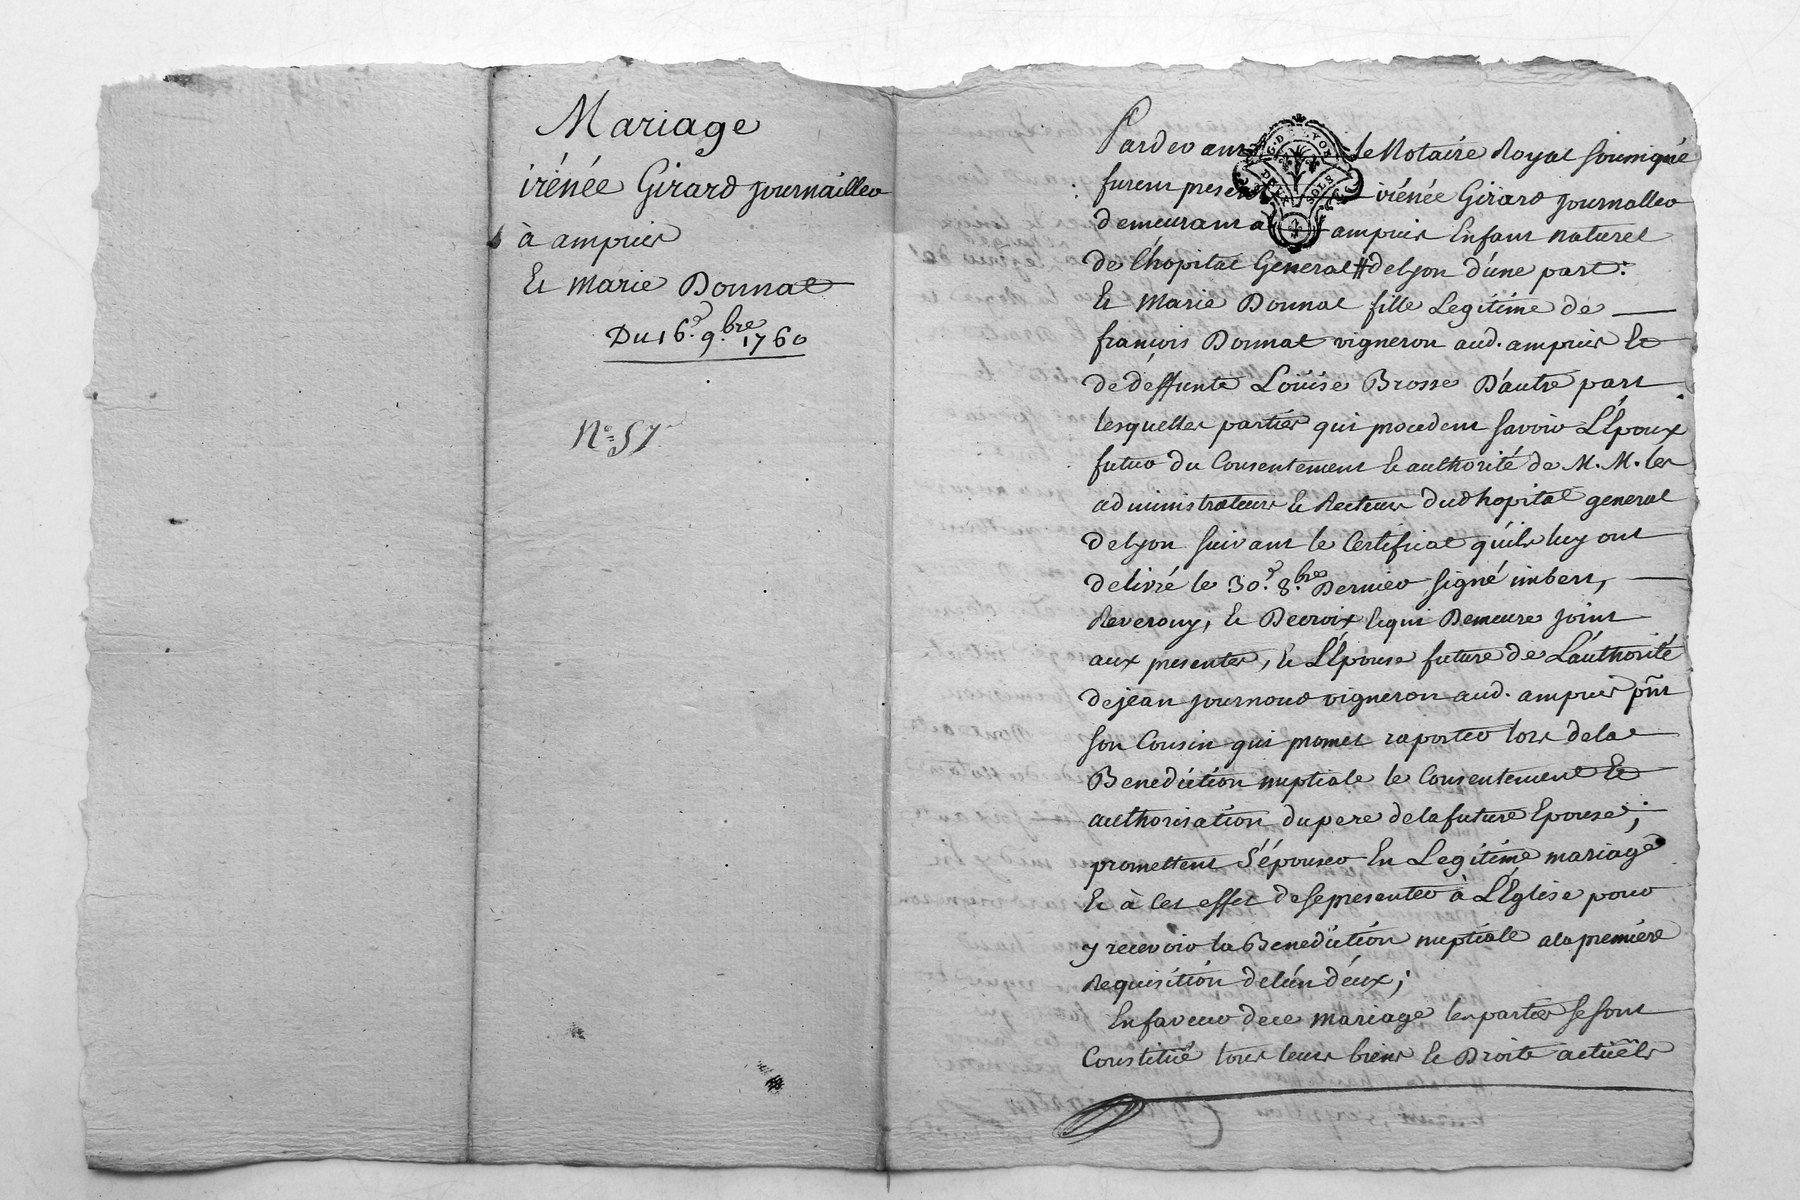 Mariage
irénée Girard journallier
à ampuis
Et Marie Donnat
Du 16.e 9.bre 1760
N.o 57
Pardevant le Notaire Royal soussigné
furent presens irénée Girard journallier
demeurant a ampuis Enfant naturel
de l'hopital General # de lyon d'une part:
Et Marie Donnat fille Legitime de
françois Donnat vigneron aud. ampuis Et
de deffunte Loüise Brosse D'autre part
lesquelles parties qui procedent savoir L'Epoux
futur du Consentement Et authorité de M. M. les
administrateurs Et Recteurs dud hopital general
de lyon suivant le Certificat qu'ils luy ont
delivré le 30.e 8.bre Dernier signé imbert,
Reverony, Et Decroix lequi Demeure joint
aux presentes, Et L'Epouse future de L'authorité
de jean journoud vigneron aud. ampuis pñt
son Cousin qui promet raporter lors de la
Benediction nuptiale le Consentement Et
authorisation du pere de la future Epouse;
promettent S'épouser En Legitime mariage
Et à Cet effet de se presenter à L'Eglise pour
y recevoir la Benediction nuptiale a la premiére
Requisition de l'un d'eux;
En faveur de ce mariage les parties se sont
Constitué tous leurs biens Et Droits actuels
G. DE LYON
DEUX SOLS